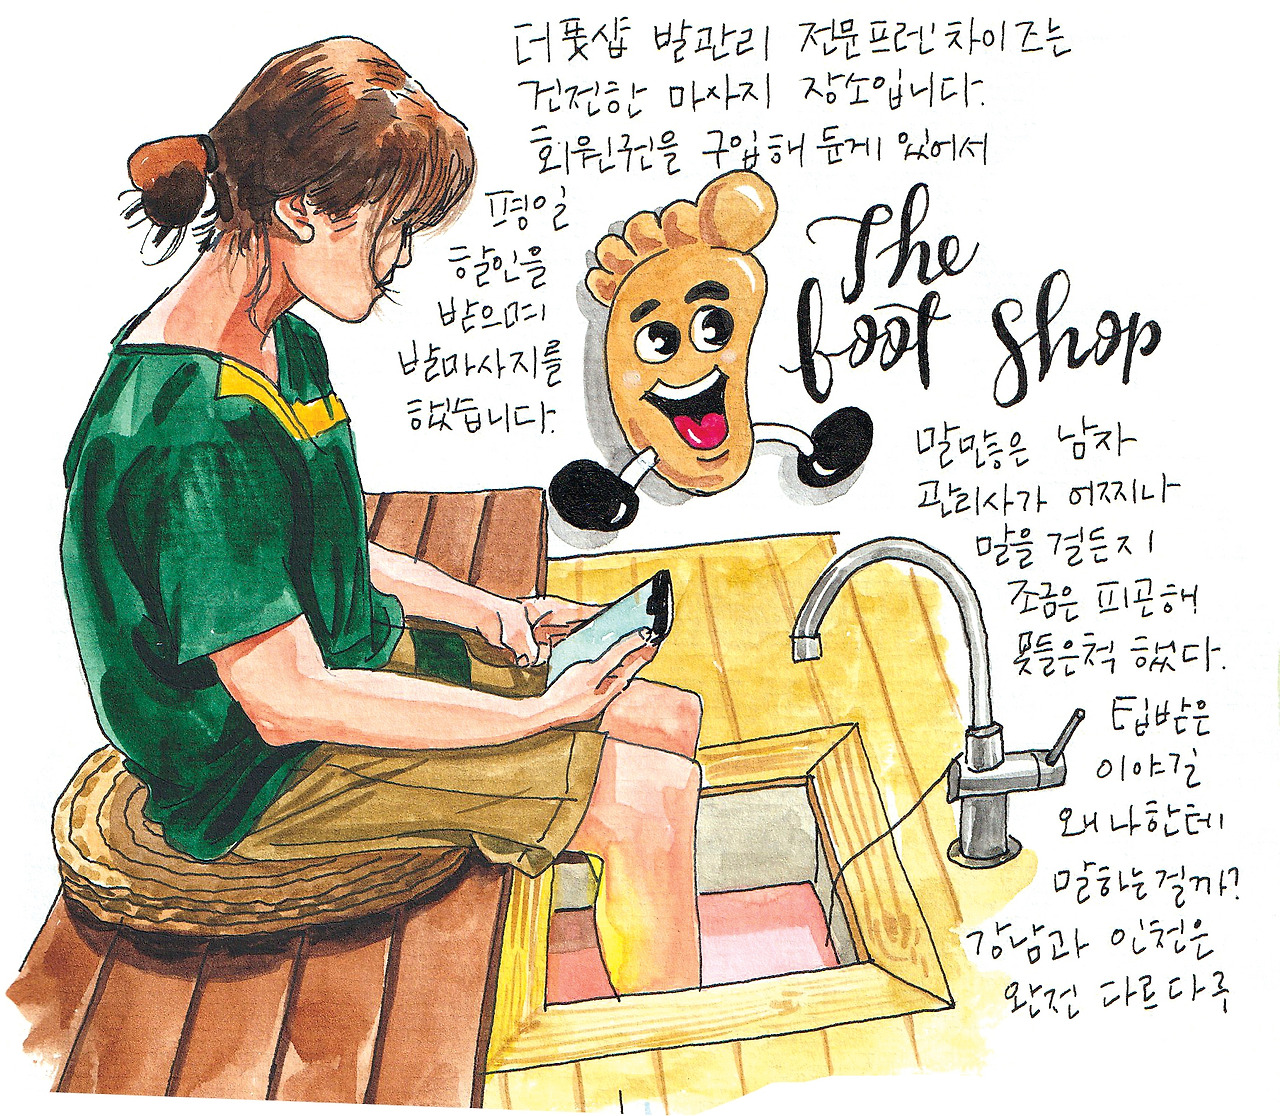 더풋샵 발관리 전문프렌차이즈는
건전한 마사지 장소입니다.
회원권을 구입해 둔게 있어서
평일
할인을
받으며
발마사지를
했습니다.
The
foot Shop
말많은 남자
관리사가 어찌나
말을 걸든지
조금은 피곤해
못들은척 했다.
팁받은
이야길
왜 나한테
말하는걸까?
강남과 인천은
완전 다르다구